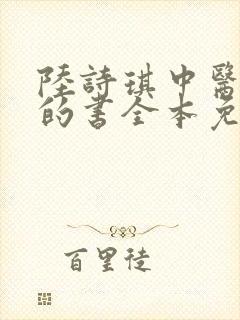 陸詩琪中醫
的書全本免
百里徒